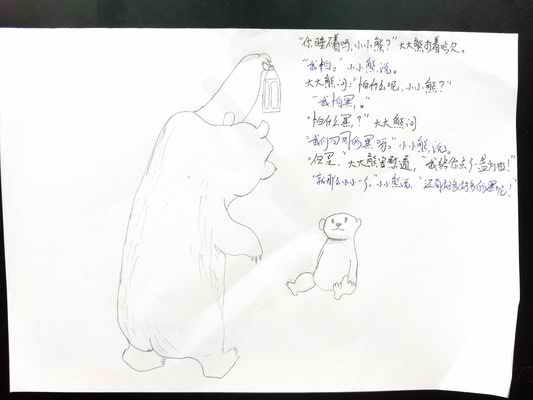 "你睡不着吗,小小熊?"大大熊打着哈欠。
"我怕。"小小熊说。
大大熊问:"怕什么呢,小小熊?"
"我怕黑。"
"怕什么黑,?"大大熊问
"我们四周的黑呀。"小小熊说。
"但是,"大大熊答道,"我给你点了盏灯的!"
"就那么小小一个。"小小熊说,"还有好多好多的黑呢!"